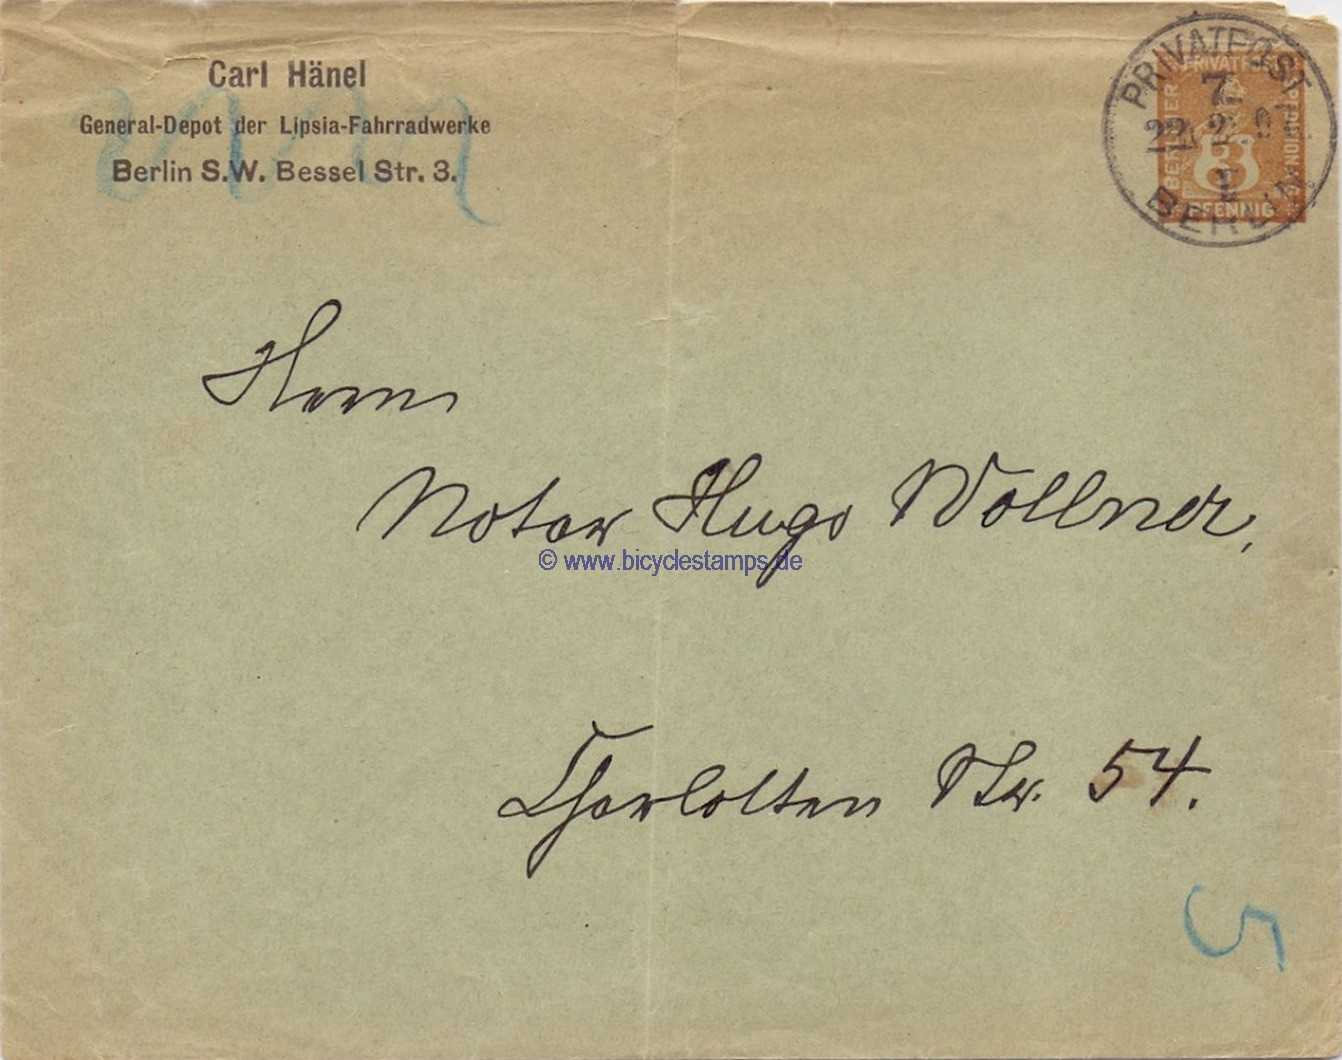 Carl Hänel
General-Depot der Lipsia-Fahrradwerke
Berlin S.W. Bessel Str. 3.
PRIVATPOST
7.
22. 2. 9
1
BERLIN
BERLINER
PRIVATPOST
3
PFENNIG
Herrn
Notar Hugo Wollner,
© www.bicyclestamps.de
Charlotten Str. 54.
5